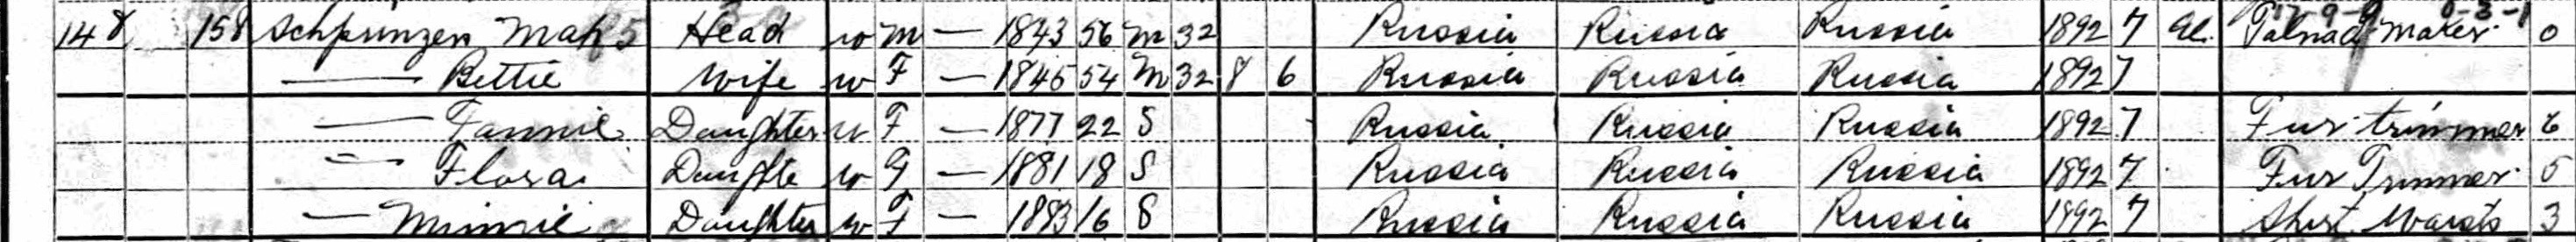 148 158 Schprinzen Max 5 Head W M — 1843 56 M 32 Russia Russia Russia 1892 7 Al. Maker 0
— Bettie Wife W F — 1845 54 M 32 8 6 Russia Russia Russia 1892 7
— Fannie Daughter W F — 1877 22 S Russia Russia Russia 1892 7 Fur trimmer 6
— Flora Daughte W F — 1881 18 S Russia Russia Russia 1892 7 Fur Trimmer
— Minnie Daughter W F — 1883 16 S Russia Russia Russia 1892 7 Shirt Waists 3